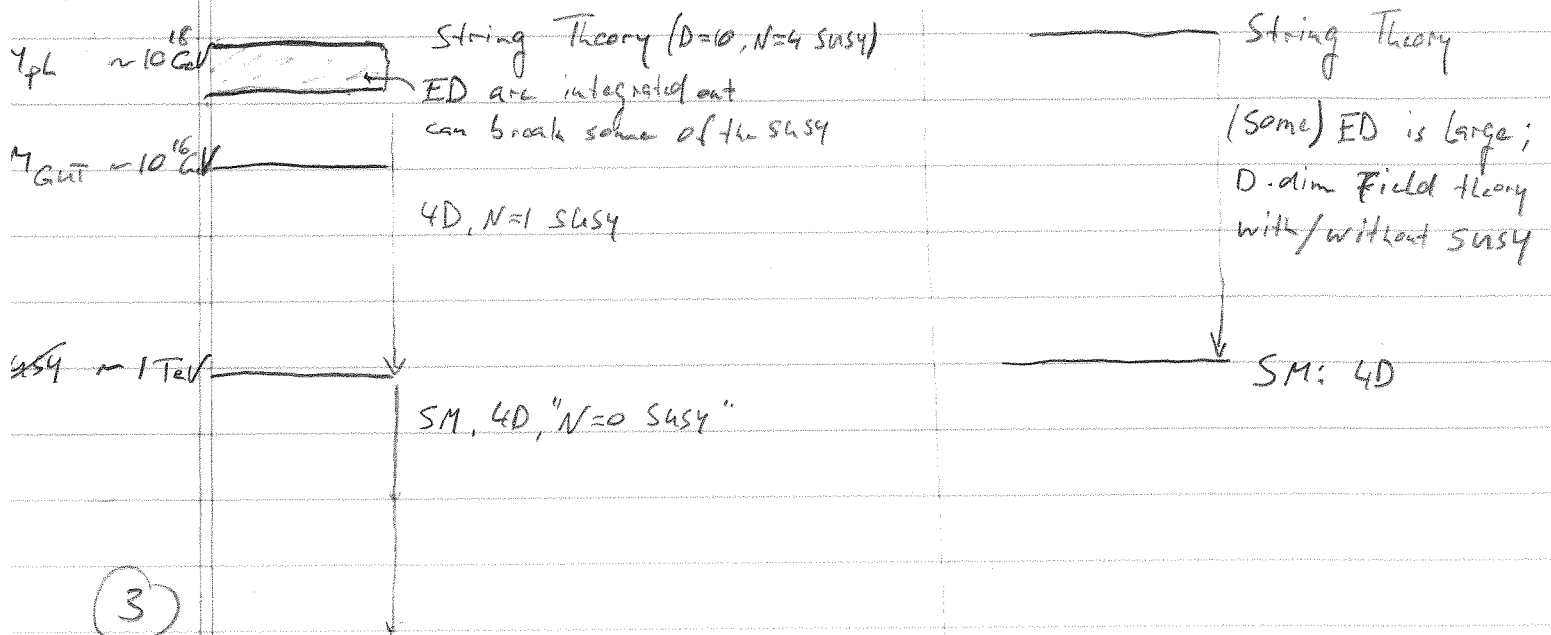 M_pl ~ 10^18 GeV String Theory (D=10, N=4 SUSY)
ED are integrated out
can break some of the SUSY
M_GUT ~ 10^16 GeV
4D, N=1 SUSY
SUSY ~ 1 TeV
SM, 4D, "N=0 SUSY"
3
String Theory
(Some) ED is large;
D-dim Field theory
with/without SUSY
SM: 4D